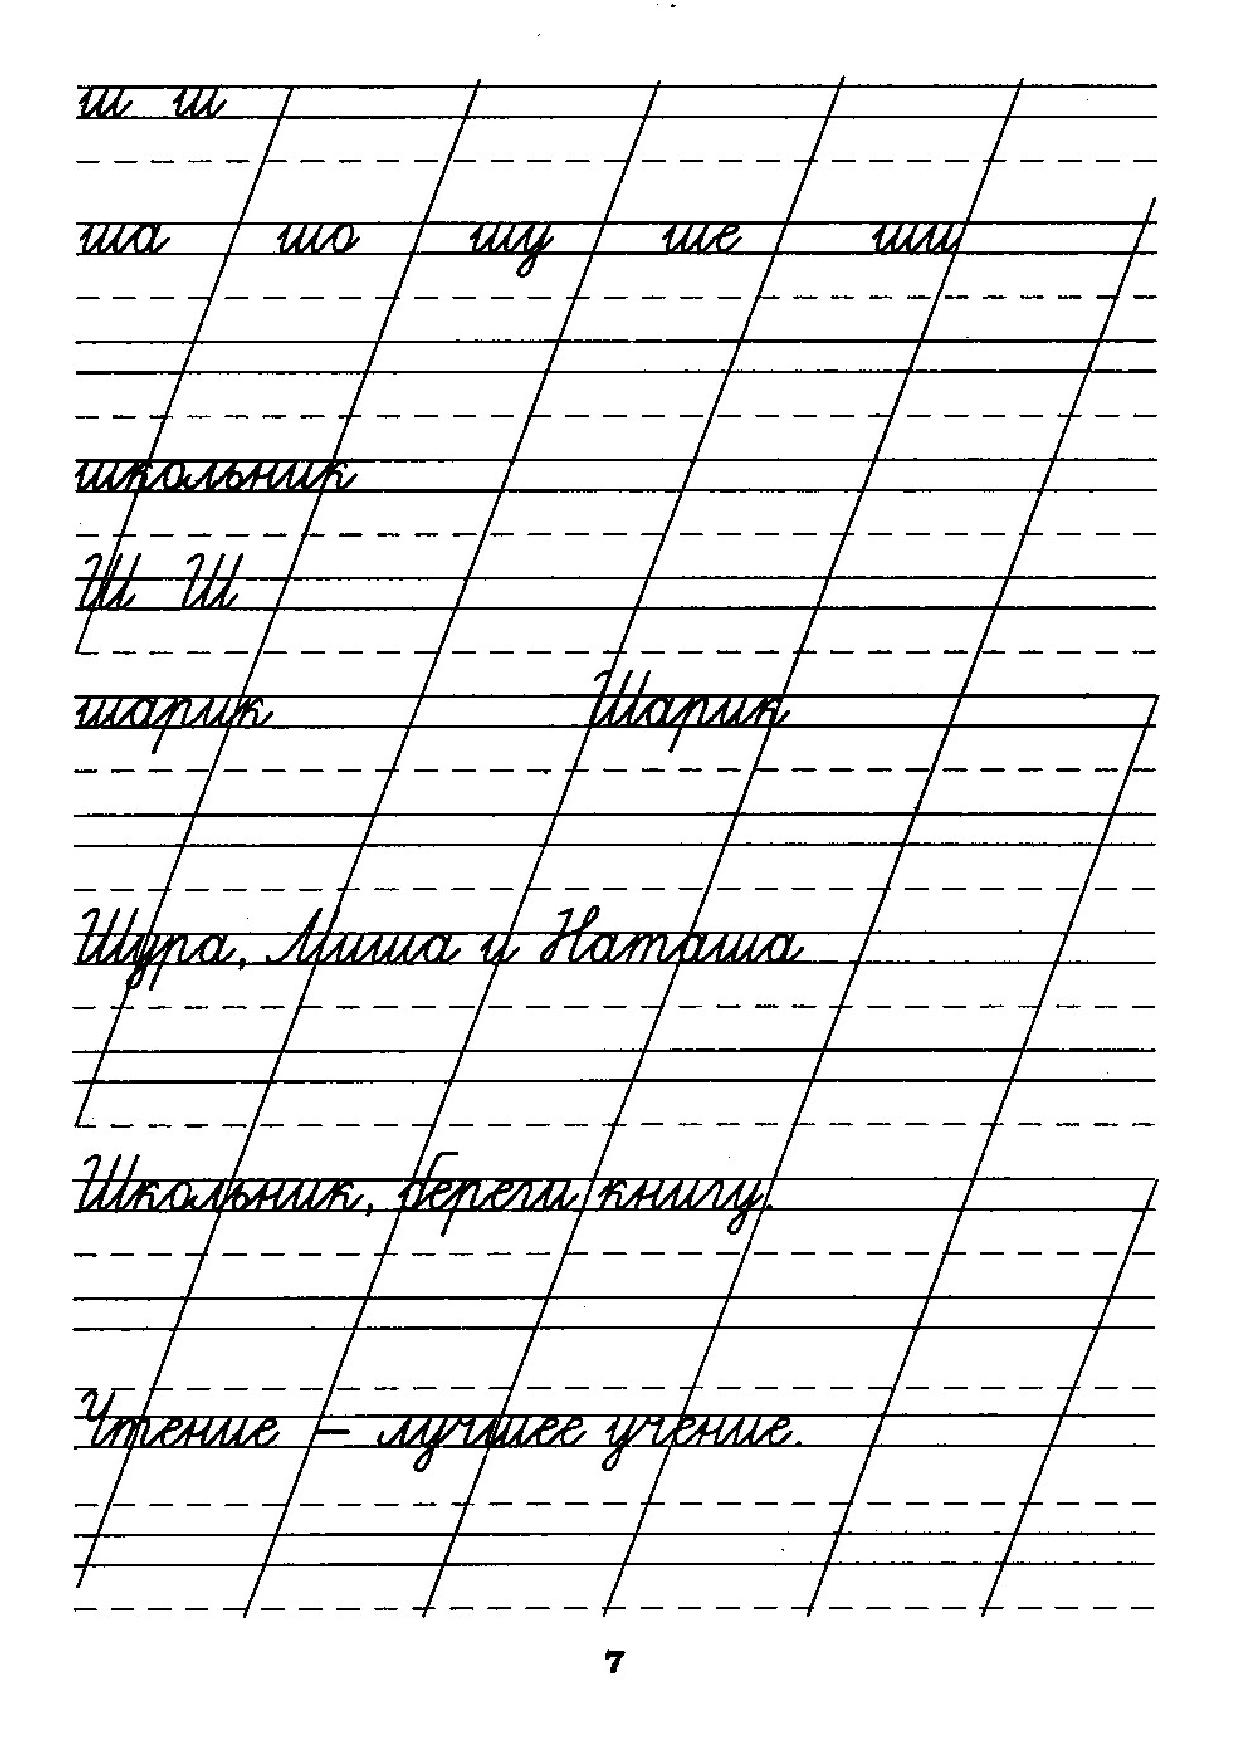 ш ш
ша шо шу ше ши
школьник
Ш Ш
шарик Шарик
Шура, Миша и Наташа
Школьник, береги книгу.
Чтение – лучшее учение.
7